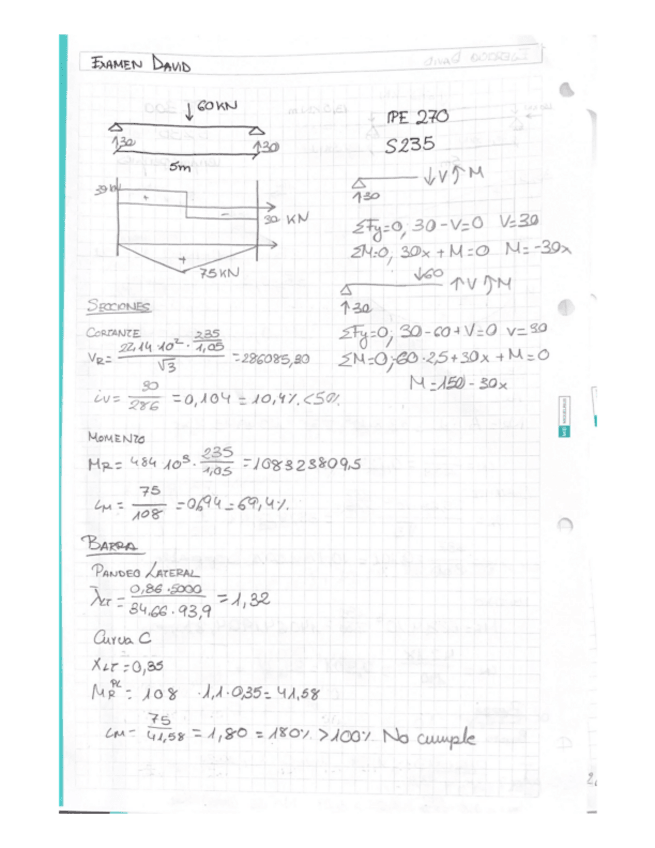 EXAMEN DAVID
↓60KN
↑30 ↑30
5m
30 KN
75KN
IPE 270
S235
↓V↑M
↑30
ΣFy=0, 30-V=0 V=30
ΣM=0, 30x+M=0 M=-30x
↓60
↑V↑M
↑30
ΣFy=0, 30-60+V=0 V=30
ΣM=0,-60·2,5+30x+M=0
M=150-30x
SECCIONES
CORTANTE
VR= 22,14·10²·235/1,05 / √3 =286085,30
iv= 30/286 =0,104=10,4%<50%
MOMENTO
MR= 484·10³·235/1,05 =108323809,5
iM= 75/108 =0,694=69,4%
BARRA
PANDEO LATERAL
λLT= 0,86·5000 / 34,66·93,9 =1,32
Curva C
XLT=0,35
MR PL = 108 ·1,1·0,35=41,58
iM= 75/41,58 =1,80=180%>100% No cumple